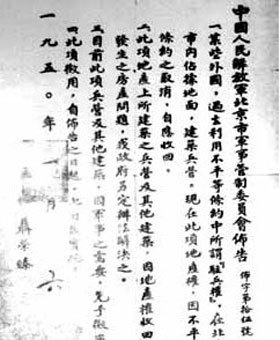 中國人民解放軍北京市軍事管制委員會佈告
佈字第拾伍號
一某些外國，過去利用不平等條約中所謂「駐兵權」，在北
市內佔據地面，建築兵營。現在此項地產權，因不平
條約之取消，自應收回。
二此項地產上所建築之兵營及其他建築，因地產權收回
發生之房產問題，我政府另定辦法解決之。
三目前此項兵營及其他建築，因軍事之需要，先予徵
四此項徵用，自佈告之日起，
一九五〇年一月六
聶榮臻